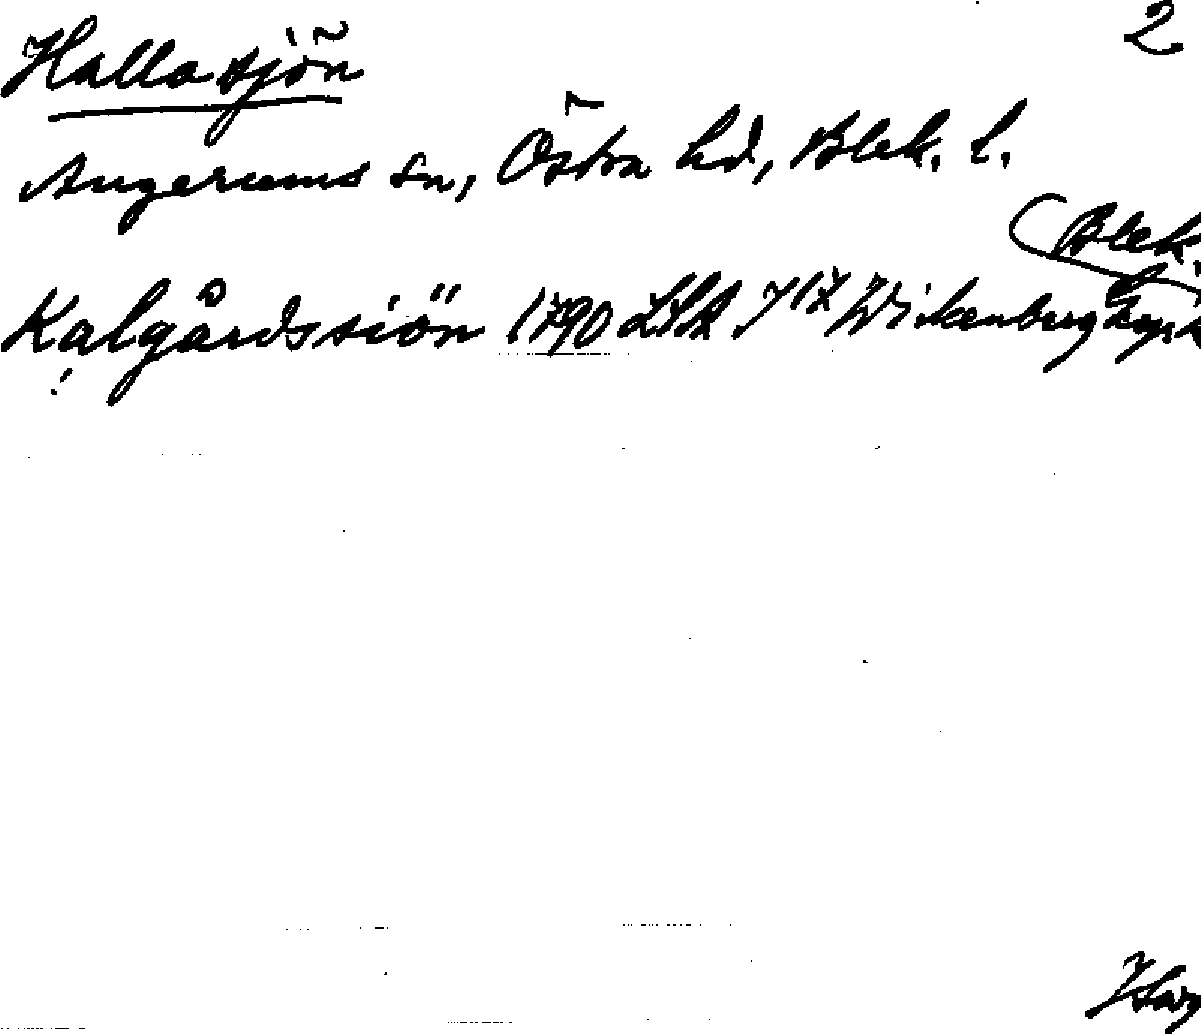 2
Hallasjön
Augerums sn, Östra hd, Blek. l.
Blek.
Kalgårdssiön 1790 LSA J 17 Wickenberg
!